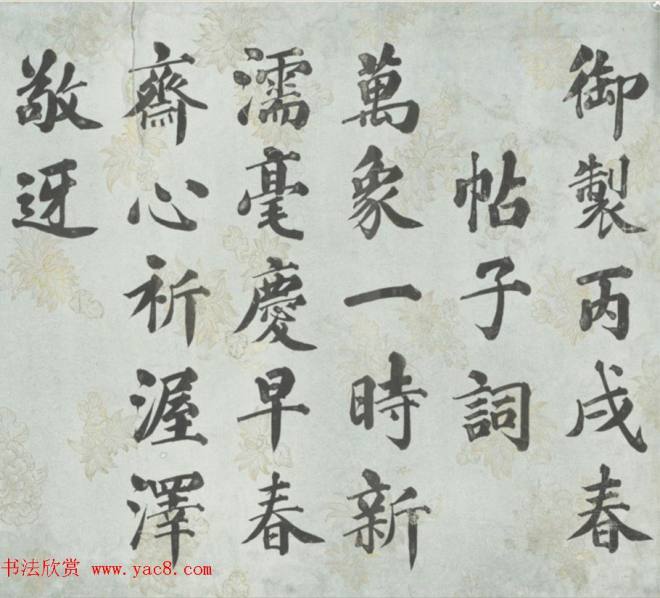 御製丙戌春
帖子詞
萬象一時新
濡毫慶早春
齋心祈渥澤
敬迓
书法欣赏 www.yac8.com